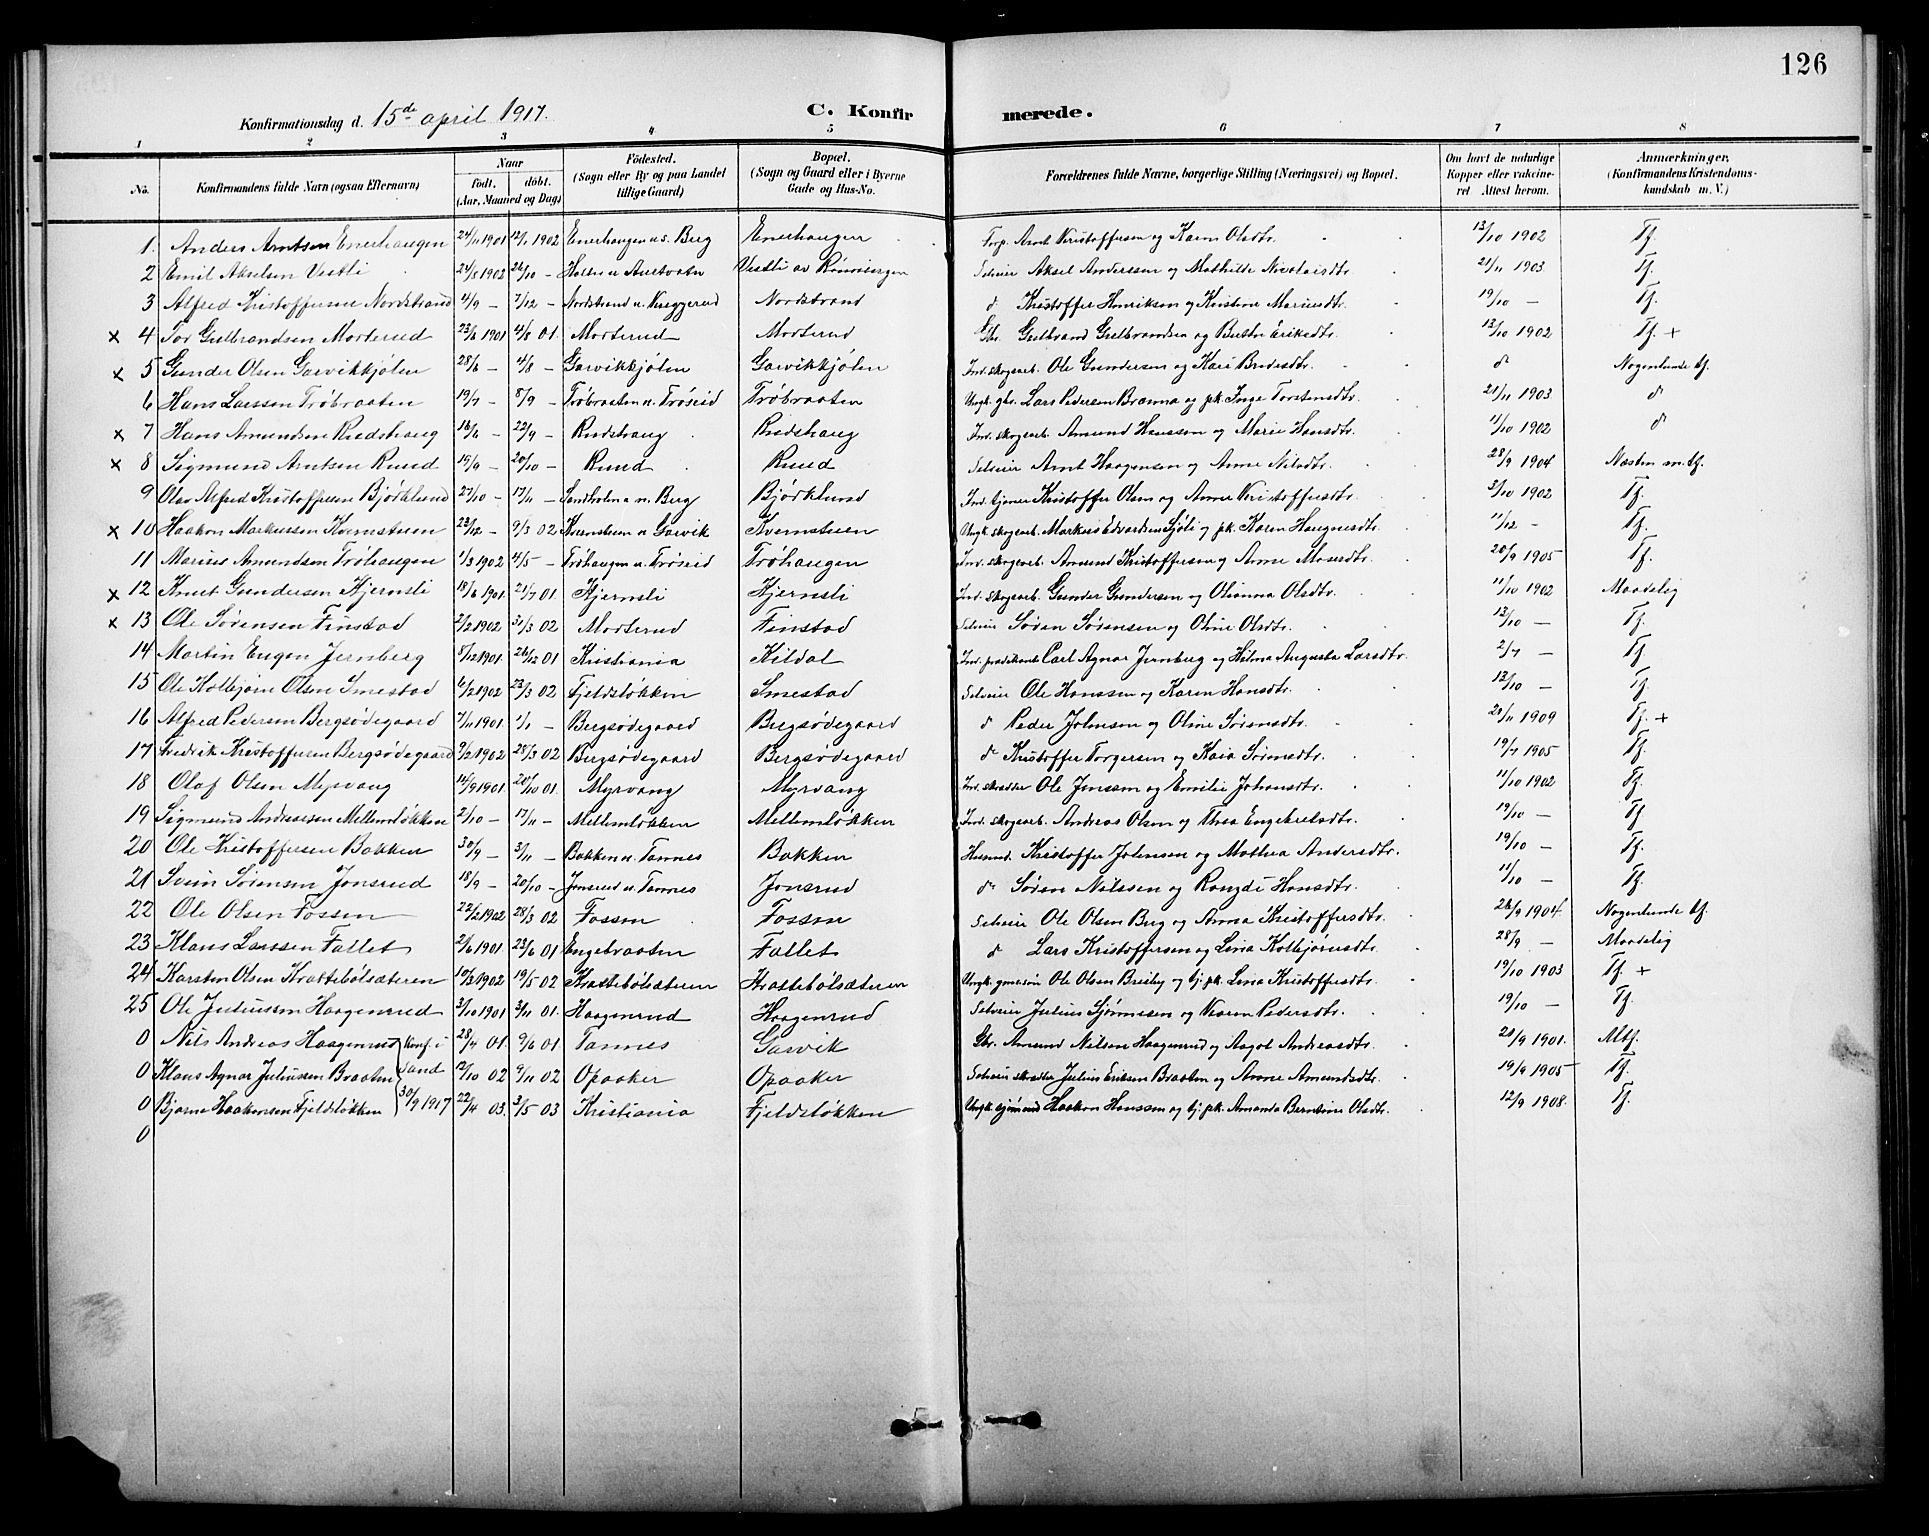 126
Konfirmationsdag d. 15de april 1917. C. Konfirmerede.
1 2 3 4 5 6 7 8
No. Konfirmandens fulde Navn (ogsaa Efternavn) Naar födt. döbt. (Aar, Maaned og Dag) Födested. (Sogn eller By og paa Landet tillige Gaard) Bopæl. (Sogn og Gaard eller i Byerne Gade og Hus-No. Forældrenes fulde Navne, borgerlige Stilling (Næringsvei) og Bopæl. Om havt de naturlige Kopper eller vakcineret Attest herom. Anmærkninger, (Konfirmandens Kristendomskundskab m. V.)
1. Anders Arntsen Enerhaugen 24/11 1901 12/1 1902 Enerhaugen u. s. Berg Enerhaugen Torp. Arnt Kristoffersen og Karen Olsdtr. 13/10 1902 Tf.
2 Emil Akselsen Vestli 24/5 1902 26/10 – Holter u Austvaten Vestli av Rønningen Selveier Aksel Anderssen og Mathilde Nicolaisdtr. 21/11 1903. Tf.
3 Alfred Kristoffersen Nordstrand 4/9 – 7/12 – Nordstrand u. Skyggerud Nordstrand d Kristoffer Henriksen og Kristine Mariusdtr. 19/10 – Tf.
x 4 Tor Gulbrandsen Morterud 23/6 1901 4/8 01 Morterud Morterud Gbr. Gulbrand Gulbrandsen og Berthe Eriksdtr. 13/10 1902 Tf. +
x 5 Gunder Olsen Garvikkjølen 28/6 – 4/8 – Garvikkjølen Garvikkjølen Ind. skogsarb. Ole Gundersen og Kari Bredesdtr. d Nogenlunde tf.
6 Hans Larssen Trøbraaten 19/7 – 8/9 – Trøbraaten u. Trøseid Trøbraaten Ungk. gbr. Lars Pedersen Brænna og pk. Inge Torstensdtr. 21/11 1903 d
x 7 Hans Amundsen Rudshaug 16/6 – 22/9 – Rudshaug Rudshaug Ind. skogsarb. Amund Hanssen og Marie Hansdtr. 11/10 1902 d
x 8 Sigmund Arntsen Ruud 15/9 – 20/10 – Ruud Ruud Selveier Arnt Haagensen og Anne Nilsdtr. 28/9 1904 Næsten m. tf.
9 Olav Alfred Kristoffersen Bjørklund 27/10 – 17/11 – Sandholen u. Berg Bjørklund Ind. tjener Kristoffer Olsen og Anne Kristoffersdtr. 3/10 1902 Tf.
x 10 Haakon Markussen Kvernstuen 23/12 – 9/3 02 Kvernstuen u Garvik Kvernstuen Ungk. skogsarb. Markus Edvardsen Sjøli og pk. Karen Haugnesdtr. 11/12 – Tf.
11 Marius Amundsen Trøhaugen 1/3 1902 4/5 – Trøhaugen u. Trøseid Trøhaugen Ind. skogsarb. Amund Kristoffersen og Anne Monsdtr. 20/9 1905 Tf.
x 12 Knut Gundersen Kjernsli 18/6 1901 21/7 01. Kjernsli Kjernsli Ind. skogsarb. Gunder Gundersen og Olianna Olsdtr. 11/10 1902 Maadelig
x 13 Ole Sørensen Finstad 2/2 1902 31/3 02 Morterud Finstad Selveier Søren Sørensen og Oline Olsdtr. 13/10 – Tf.
14 Martin Eugen Jernberg 5/12 1901. 26/12 01 Kristiania Kildal Ind. prædikant Carl Agnar Jernberg og Hilma Augusta Larsdtr. 2/7 – Tf
15 Ole Kolbjørn Olsen Smestad 6/2 1902 23/3 02 Fjeldsløkken Smestad Selveier Ole Hanssen og Karen Hansdtr. 13/10 – Tf.
16 Alfred Pedersen Bergsødegaard 7/11 1901 1/1 – Bergsødegaard Bergsødegaard d Peder Johnsen og Oline Sørensdtr. 20/11 1909 Tf. +
17 Fredrik Kristoffersen Bergsødegaard 9/2 1902 28/3 02 Bergsødegaard Bergsødegaard d Kristoffer Torgersen og Kaia Sørensdtr. 19/7 1905 Tf.
18 Olaf Olsen Myrvang 14/9 1901. 20/10 01. Myrvang Myrvang Ind. skrædder Ole Jonssen og Emilie Johansdtr. 11/10 1902 Tf.
19 Sigmund Andreassen Mellemløkken 2/10 – 17/11 – Mellemløkken Mellemløkken Ind. skogsarb. Andreas Olsen og Thea Engebretsdtr. 19/10 – Tf.
20 Ole Kristoffersen Bakken 30/9 – 3/11 – Bakken u. Tannes Bakken Husmd. Kristoffer Johnsen og Mathea Andersdtr. 19/10 – Tf.
21 Svein Sørensen Jonsrud 18/9 – 20/10 – Jonsrud u. Tannes Jonsrud d Søren Nilssen og Rangdi Hansdtr. 11/10 – Tf.
22 Ole Olsen Fossen 22/2 1902 28/3 02 Fossen Fossen Selveier Ole Olsen Berg og Anna Kristoffersdtr. 26/9 1904. Nogenlunde tf.
23 Klaus Larssen Fallet 2/6 1901 23/6 01 Engebraaten Fallet d Lars Kristoffersen og Lina Kolbjørnsdtr. 28/9 – Maadelig
24 Karsten Olsen Krattebølsæteren 10/2 1902 19/5 02 Krattebølsæteren Krattebølsæteren Ungk. gmersøn Ole Olsen Breiby og tj. pk. Lina Kristoffersdtr. 19/10 1903 Tf +
25 Ole Juliussen Haagenrud 3/10 1901 3/11 01. Haagenrud Haagenrud Selveier Julius Sjønnesen og Karen Pedersdtr. 19/10 – Tf.
0 Nils Andreas Haagenrud Konf. i 28/4 01. 9/6 01 Tannes Garvik Gbr. Amund Nilsen Haagenrud og Aagot Andreasdtr. 20/9 1901. Mtf.
0 Klaus Agnar Juliussen Braaten Sand 12/10 02 9/11 02 Opaaker Opaaker Selveier skrædder Julius Eriksen Braaten og Anne Amundsdtr. 19/9 1905 Tf.
0 Bjarne Haakonsen Fjeldsløkken 30/9 1917 22/4 03. 3/5 03 Kristiania Fjeldsløkken Ungk. sjømand Haakon Hanssen og tj. pk. Amanda Berntine Olsdtr. 12/9 1908. Tf.
0